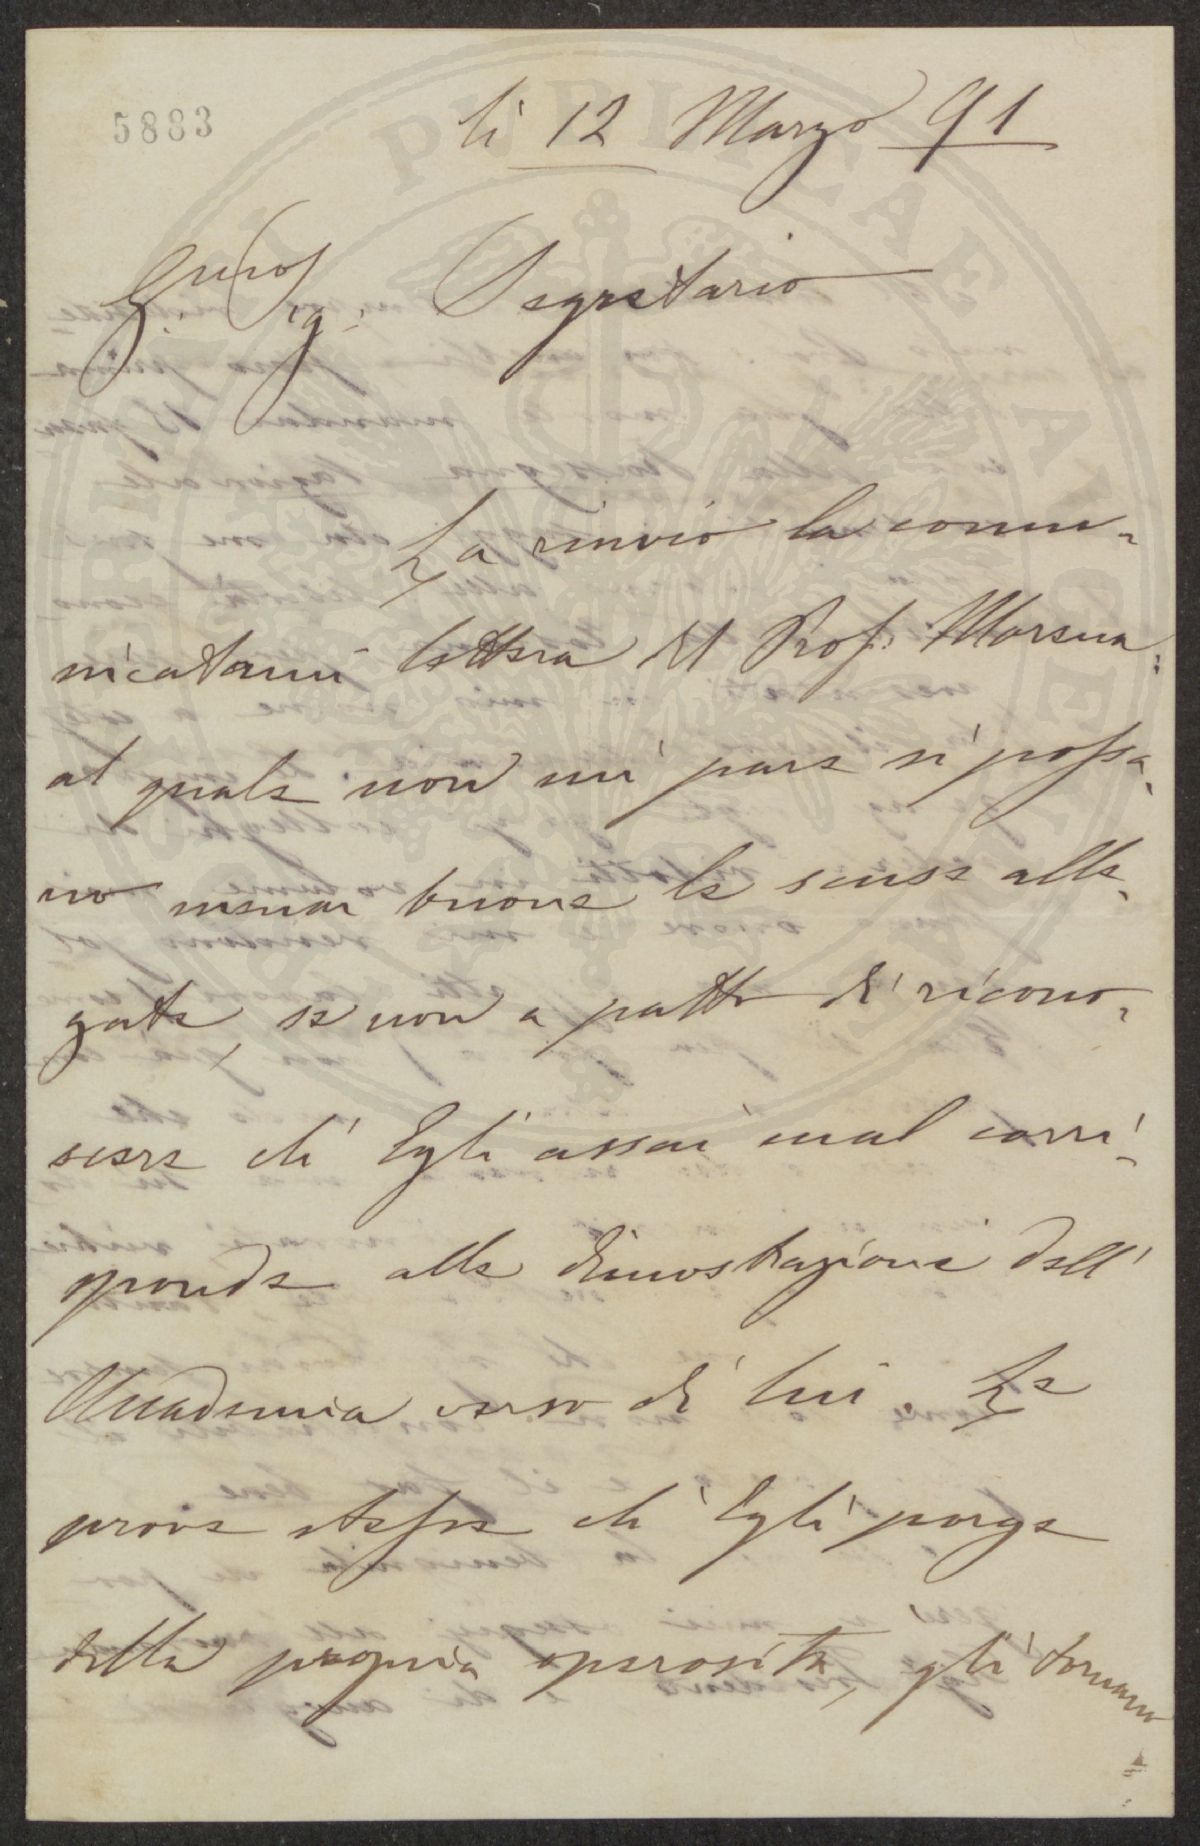 5883
li 12 Marzo 91
Sig. Segretario
La rinvio la comu-
nicatami lettera del Prof.
al quale non mi pare si possa-
no menar buone le scuse alle-
gate, se non a patto di ricono-
scere ch' Egli assai mal corri-
sponde alle dimostrazioni dell'
Accademia verso di lui. Le
prove stesse ch' Egli porge
della propria operosità, gli tornano